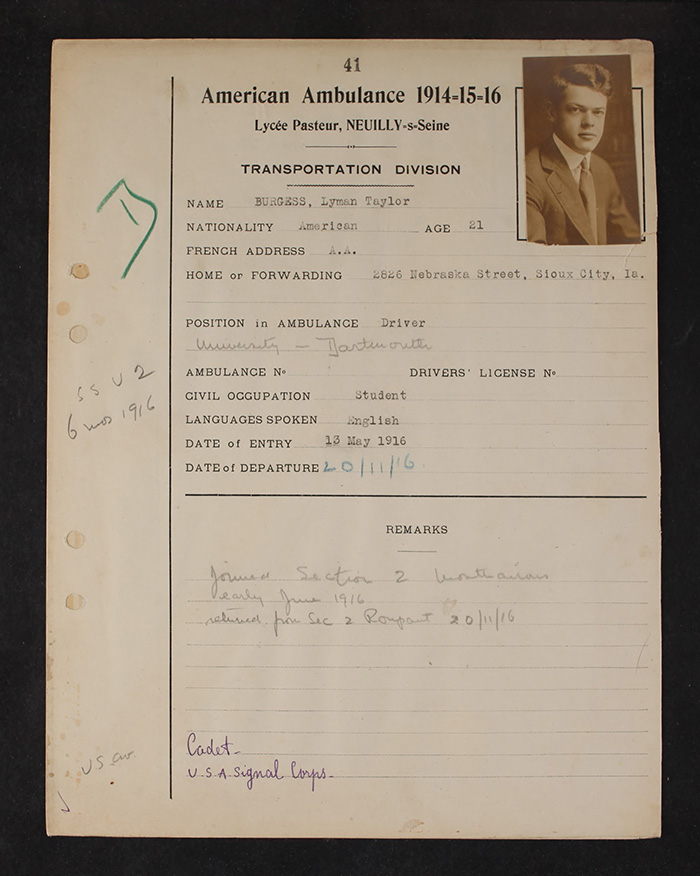 41
American Ambulance 1914=15=16
Lycée Pasteur, NEUILLY-s-Seine
TRANSPORTATION DIVISION
NAME BURGESS, Lyman Taylor
NATIONALITY American AGE 21
FRENCH ADDRESS A.A.
HOME or FORWARDING 2826 Nebraska Street, Sioux City, Ia.
POSITION in AMBULANCE Driver
University - Dartmouth
AMBULANCE No DRIVERS' LICENSE No
S S U 2
CIVIL OCCUPATION Student
6 mos 1916
LANGUAGES SPOKEN English
DATE of ENTRY 13 May 1916
DATE of DEPARTURE 20/11/16.
REMARKS
Joined Section 2
early June 1916
returned from Sec 2 Rampont 20/11/16
Cadet-
US av.
U.S.A. Signal Corps-